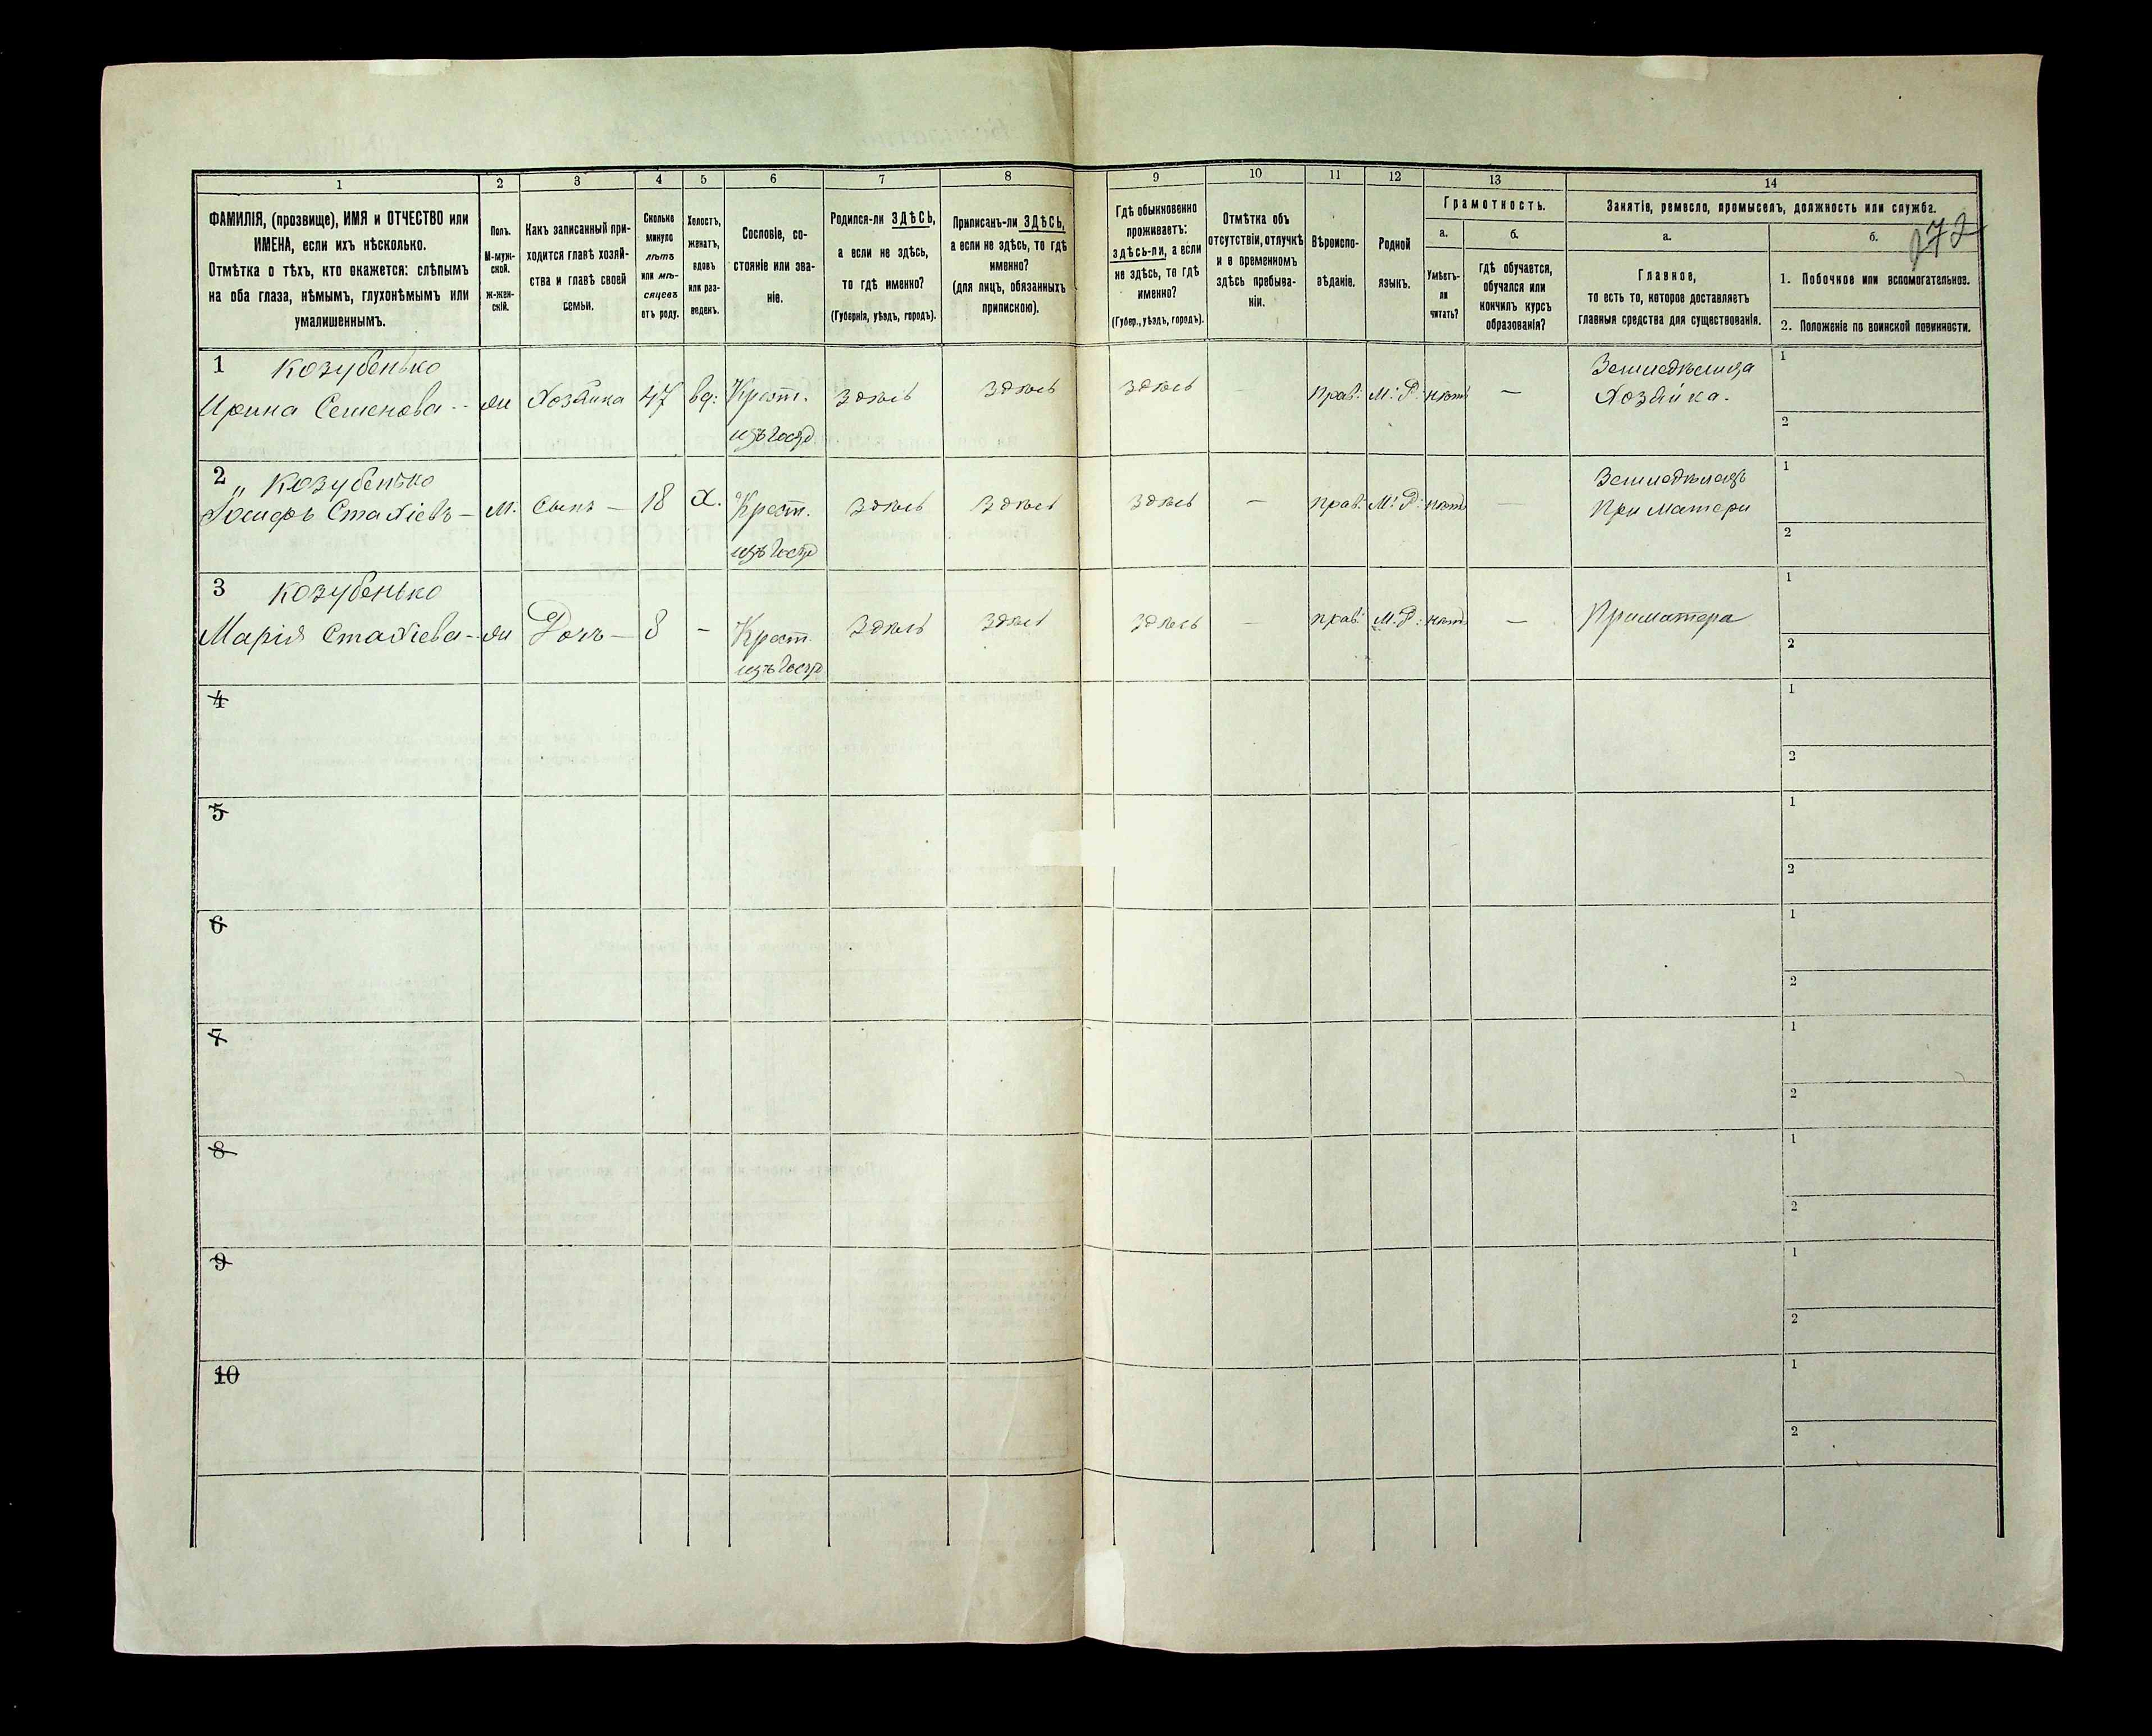 1 2 3 4 5 6 7 8 9 10 11 12 13 14
ФАМИЛІЯ, (прозвище), ИМЯ и ОТЧЕСТВО или
ИМЕНА, если ихъ нѣсколько.
Отмѣтка о тѣхъ, кто окажется: слѣпымъ
на оба глаза, нѣмымъ, глухонѣмымъ или
умалишеннымъ.
Полъ.
М-муж-
ской.
ж-жен-
скій.
Какъ записанный при-
ходится главѣ хозяй-
ства и главѣ своей
семьи.
Сколько
минуло
лѣтъ
или мѣ-
сяцевъ
отъ роду.
Холостъ,
женатъ,
вдовъ
или раз-
веденъ.
Сословіе, со-
стояніе или зва-
ніе.
Родился-ли ЗДѢСЬ,
а если не здѣсь,
то гдѣ именно?
(Губернія, уѣздъ, городъ).
Приписанъ-ли ЗДѢСЬ,
а если не здѣсь, то гдѣ
именно?
(для лицъ, обязанныхъ
припискою).
Гдѣ обыкновенно
проживаетъ:
здѣсь-ли, а если
не здѣсь, то гдѣ
именно?
(Губер., уѣздъ, городъ).
Отмѣтка объ
отсутствіи, отлучкѣ
и о временномъ
здѣсь пребыва-
ніи.
Вѣроиспо-
вѣданіе.
Родной
языкъ.
Грамотность.
а.
Умѣетъ-
ли
читать?
б.
гдѣ обучается,
обучался или
кончилъ курсъ
образованія?
Занятіе, ремесло, промыселъ, должность или служба.
272
а.
Главное,
то есть то, которое доставляетъ
главныя средства для существованія.
б.
1. Побочное или вспомогательное.
2. Положеніе по воинской повинности.
1 Козубенько
Ирина Семенова - ж Хозяйка 47 вд: Крест. здѣсь здѣсь здѣсь - прав: М: Р: нѣтъ — Земледѣлица 1
изъ Госуд Хозяйка. 2
2 „ Козубенько
Іосифъ Стахіевъ — М. Сынъ — 18 Х. Крест. здѣсь здѣсь здѣсь — прав: М: Р: нѣтъ — Земледѣлецъ 1
изъ Госуд При Матери 2
3 Козубенько
Марія Стахіева - ж Дочь — 8 - Крест. здѣсь здѣсь здѣсь — прав: М: Р: нѣтъ — При матери 1
изъ Госуд 2
4 1
2
5 1
2
6 1
2
7 1
2
8 1
2
9 1
2
10 1
2